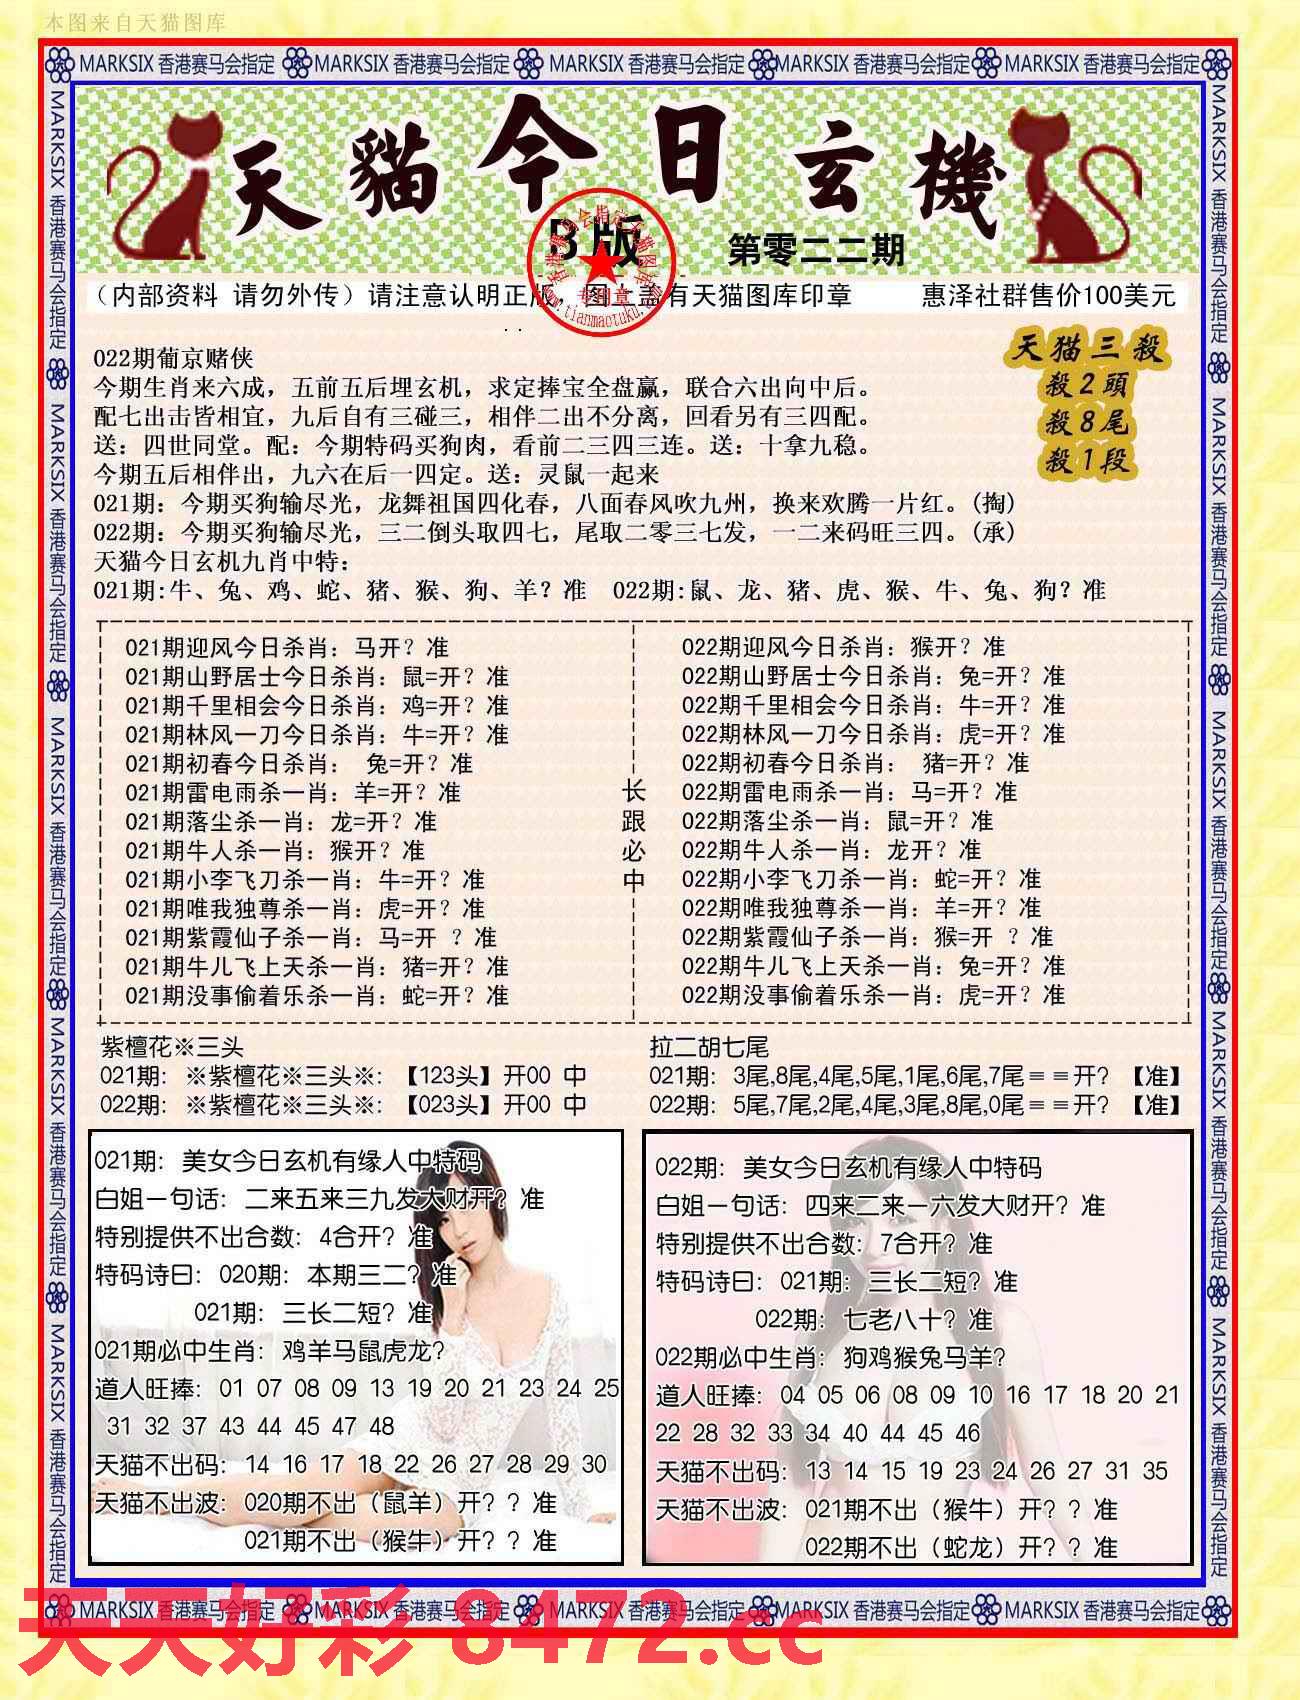 本图来自天猫图库
MARKSIX 香港赛马会指定 MARKSIX 香港赛马会指定 MARKSIX 香港赛马会指定 MARKSIX 香港赛马会指定 MARKSIX 香港赛马会指定
天貓今日玄機
B版
第零二二期
(内部资料 请勿外传)请注意认明正版,图上盖有天猫图库印章 惠泽社群售价100美元
专用章
www.tianmaotuku.com
天猫三殺
殺2頭
殺8尾
殺1段
022期葡京赌侠
今期生肖来六成，五前五后埋玄机，求定捧宝全盘赢，联合六出向中后。
配七出击皆相宜，九后自有三碰三，相伴二出不分离，回看另有三四配。
送：四世同堂。配：今期特码买狗肉，看前二三四三连。送：十拿九稳。
今期五后相伴出，九六在后一四定。送：灵鼠一起来
021期：今期买狗输尽光，龙舞祖国四化春，八面春风吹九州，换来欢腾一片红。(掏)
022期：今期买狗输尽光，三二倒头取四七，尾取二零三七发，一二来码旺三四。(承)
天猫今日玄机九肖中特：
021期:牛、兔、鸡、蛇、猪、猴、狗、羊？准 022期:鼠、龙、猪、虎、猴、牛、兔、狗？准
021期迎风今日杀肖：马开？准
021期山野居士今日杀肖：鼠=开？准
021期千里相会今日杀肖：鸡=开？准
021期林风一刀今日杀肖：牛=开？准
021期初春今日杀肖： 兔=开？准
021期雷电雨杀一肖：羊=开？准
021期落尘杀一肖：龙=开？准
021期牛人杀一肖：猴开？准
021期小李飞刀杀一肖：牛=开？准
021期唯我独尊杀一肖：虎=开？准
021期紫霞仙子杀一肖：马=开 ？准
021期牛儿飞上天杀一肖：猪=开？准
021期没事偷着乐杀一肖：蛇=开？准
长跟必中
022期迎风今日杀肖：猴开？准
022期山野居士今日杀肖：兔=开？准
022期千里相会今日杀肖：牛=开？准
022期林风一刀今日杀肖：虎=开？准
022期初春今日杀肖： 猪=开？准
022期雷电雨杀一肖：马=开？准
022期落尘杀一肖：鼠=开？准
022期牛人杀一肖：龙开？准
022期小李飞刀杀一肖：蛇=开？准
022期唯我独尊杀一肖：羊=开？准
022期紫霞仙子杀一肖：猴=开 ？准
022期牛儿飞上天杀一肖：兔=开？准
022期没事偷着乐杀一肖：虎=开？准
紫檀花※三头
021期：※紫檀花※三头※：【123头】开00 中
022期：※紫檀花※三头※：【023头】开00 中
拉二胡七尾
021期：3尾,8尾,4尾,5尾,1尾,6尾,7尾＝＝开？【准】
022期：5尾,7尾,2尾,4尾,3尾,8尾,0尾＝＝开？【准】
021期：美女今日玄机有缘人中特码
白姐一句话：二来五来三九发大财开？准
特别提供不出合数：4合开？准
特码诗曰：020期：本期三二？准
021期：三长二短？准
021期必中生肖：鸡羊马鼠虎龙？
道人旺捧：01 07 08 09 13 19 20 21 23 24 25
31 32 37 43 44 45 47 48
天猫不出码：14 16 17 18 22 26 27 28 29 30
天猫不出波：020期不出（鼠羊）开？？准
021期不出（猴牛）开？？准
022期：美女今日玄机有缘人中特码
白姐一句话：四来二来一六发大财开？准
特别提供不出合数：7合开？准
特码诗曰：021期：三长二短？准
022期：七老八十？准
022期必中生肖：狗鸡猴兔马羊？
道人旺捧：04 05 06 08 09 10 16 17 18 20 21
22 28 32 33 34 40 44 45 46
天猫不出码：13 14 15 19 23 24 26 27 31 35
天猫不出波：021期不出（猴牛）开？？准
022期不出（蛇龙）开？？准
MARKSIX 香港赛马会指定 MARKSIX 香港赛马会指定 MARKSIX 香港赛马会指定 MARKSIX 香港赛马会指定 MARKSIX 香港赛马会指定
天天好彩 8472.cc
MARKSIX 香港赛马会指定 MARKSIX 香港赛马会指定 MARKSIX 香港赛马会指定 MARKSIX 香港赛马会指定 MARKSIX 香港赛马会指定
MARKSIX 香港赛马会指定 MARKSIX 香港赛马会指定 MARKSIX 香港赛马会指定 MARKSIX 香港赛马会指定 MARKSIX 香港赛马会指定